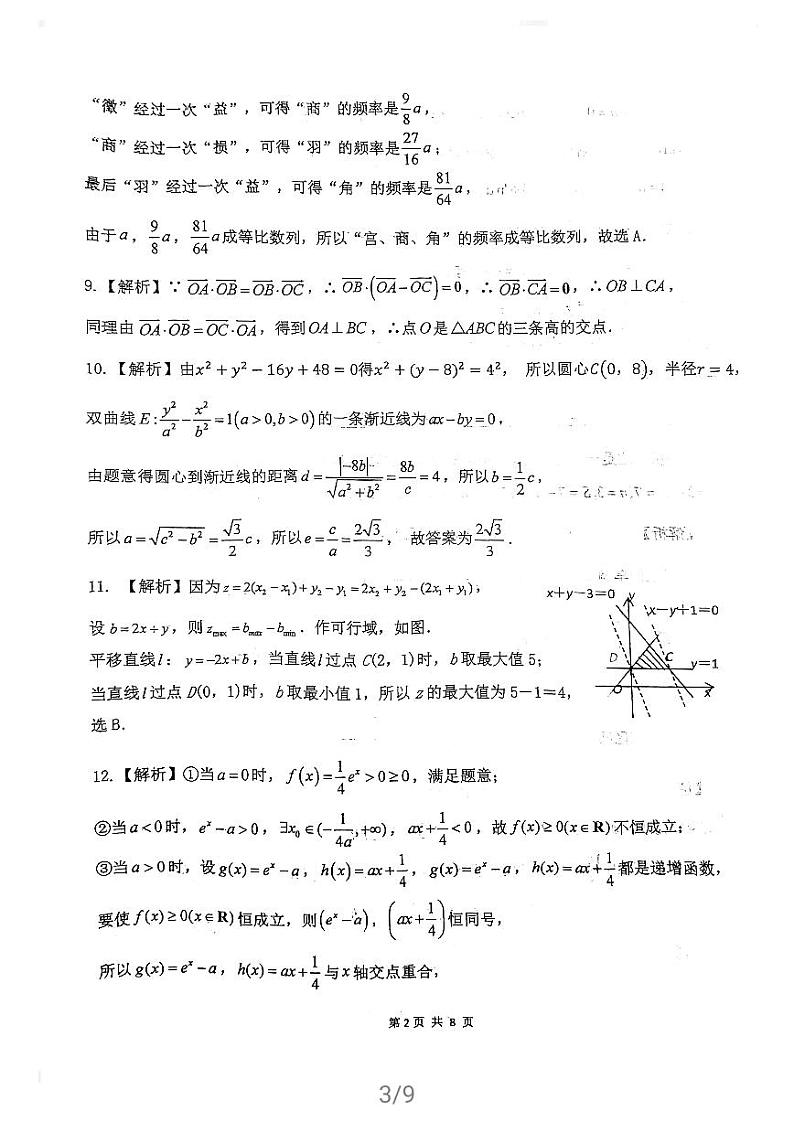 “徵”经过一次“益”，可得“商”的频率是9/8 a，
“商”经过一次“损”，可得“羽”的频率是27/16 a；
最后“羽”经过一次“益”，可得“角”的频率是81/64 a，
由于a，9/8 a，81/64 a成等比数列，所以“宫、商、角”的频率成等比数列，故选A．
9.【解析】∵ OA·OB=OB·OC，∴ OB·(OA−OC)=0，∴ OB·CA=0，∴OB⊥CA，
同理由 OA·OB=OC·OA，得到OA⊥BC，∴点O是△ABC的三条高的交点．
10.【解析】由x²+y²−16y+48=0得x²+(y−8)²=4²， 所以圆心C(0，8)，半径r=4，
双曲线E:y²/a²−x²/b²=1(a>0,b>0)的一条渐近线为ax−by=0，
由题意得圆心到渐近线的距离d=|−8b|/√(a²+b²)=8b/c=4，所以b=1/2 c，
所以a=√(c²−b²)=√3/2 c，所以e=c/a=2√3/3， 故答案为2√3/3．
11. 【解析】因为z=2(x₂−x₁)+y₂−y₁=2x₂+y₂−(2x₁+y₁)，
设b=2x+y，则z_max=b_max−b_min．作可行域，如图．
平移直线l：y=−2x+b，当直线l过点C(2，1)时，b取最大值5；
当直线l过点D(0，1)时，b取最小值1，所以z的最大值为5−1=4，
选B．
x+y−3=0 y
x−y+1=0
D C y=1
O x
12.【解析】①当a=0时，f(x)=1/4 eˣ>0≥0，满足题意；
②当a<0时，eˣ−a>0，∃x₀∈(−1/4a,+∞)，ax+1/4<0，故f(x)≥0(x∈R)不恒成立；
③当a>0时，设g(x)=eˣ−a，h(x)=ax+1/4，g(x)=eˣ−a，h(x)=ax+1/4都是递增函数，
要使f(x)≥0(x∈R)恒成立，则(eˣ−a)，(ax+1/4)恒同号，
所以g(x)=eˣ−a，h(x)=ax+1/4与x轴交点重合，
第2页 共 8 页
3/9